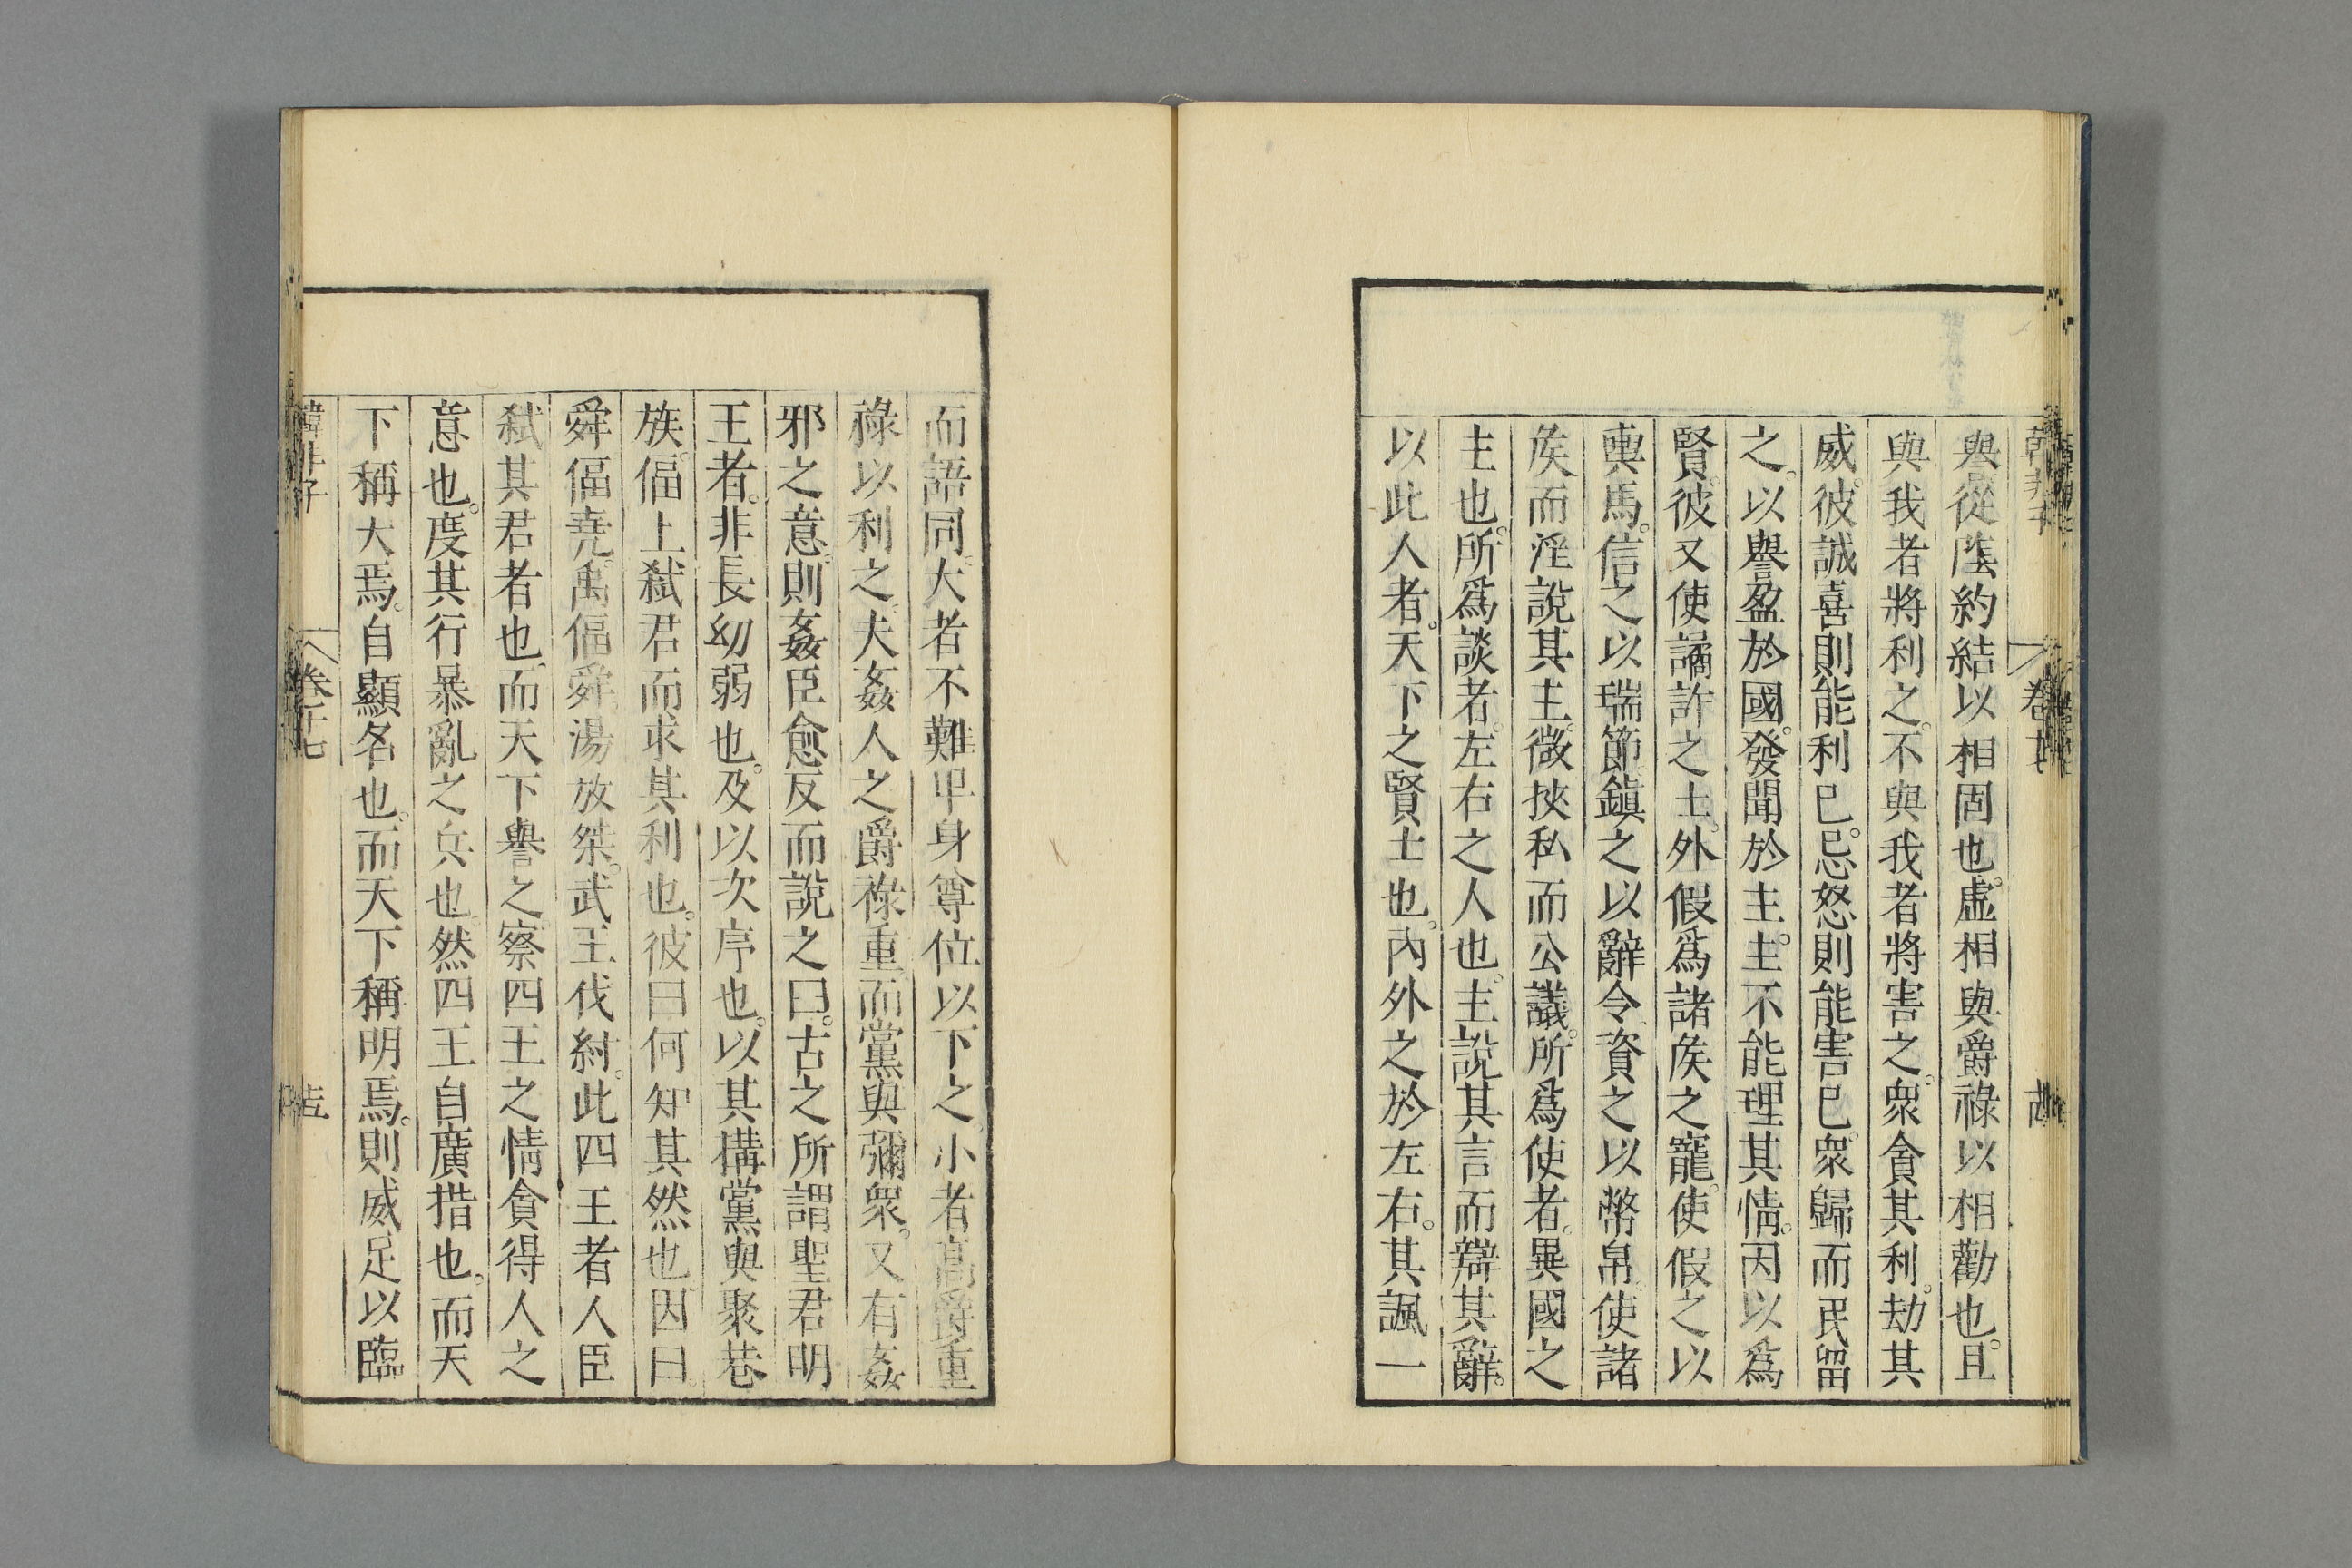 韓非子 卷十七
譽從陰約結以相固也。虛相與爵祿以相勸也。且
與我者將利之。不與我者將害之。衆貪其利。劫其
威。彼誠喜則能利己。忌怒則能害己。衆歸而民留
之。以譽盈於國。發聞於主。主不能理其情。因以爲
賢。彼又使譎詐之士。外假爲諸矦之寵。使假之以
輿馬。信之以瑞節。鎮之以辭令。資之以幣帛。使諸
矦而淫說其主。微挾私而公議。所爲使者。異國之
主也。所爲談者。左右之人也。主說其言而辯其辭。
以此人者。天下之賢士也。內外之於左右。其諷一
而語同。大者不難卑身尊位以下之。小者高爵重
祿以利之。夫姦人之爵祿重而黨與彌衆。又有姦
邪之意。則姦臣愈反而說之曰。古之所謂聖君明
王者。非長幼弱也。及以次序也。以其搆黨與聚巷
族。偪上弑君而求其利也。彼曰何知其然也。因曰。
舜偪堯。禹偪舜。湯放桀。武王伐紂。此四王者人臣
弑其君者也。而天下譽之。察四王之情貪得人之
意也。度其行暴亂之兵也。然四王自廣措也。而天
下稱大焉。自顯名也。而天下稱明焉。則威足以臨
韓非子 卷十七 十五